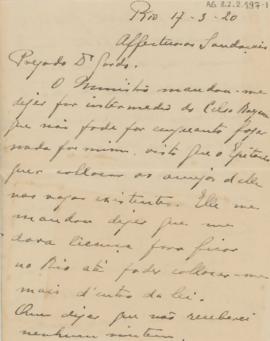 AG 22.2.997-1
Rio 17-3-20
Affectuosas Saudações
Prezado Dr Gordo.
O Ministro mandou-me
dizer por intermedio do Celso Bayma
que não pode por emquanto fazer
nada por mim, visto que o Epitacio
quer collocar os amigos d'elle
nas vagas existentes. Elle me
mandou dizer que me
dava licença para ficar
no Rio até poder collocar-me
mais d'entro da lei.
Quer dizer que não receberei
nenhum vintem